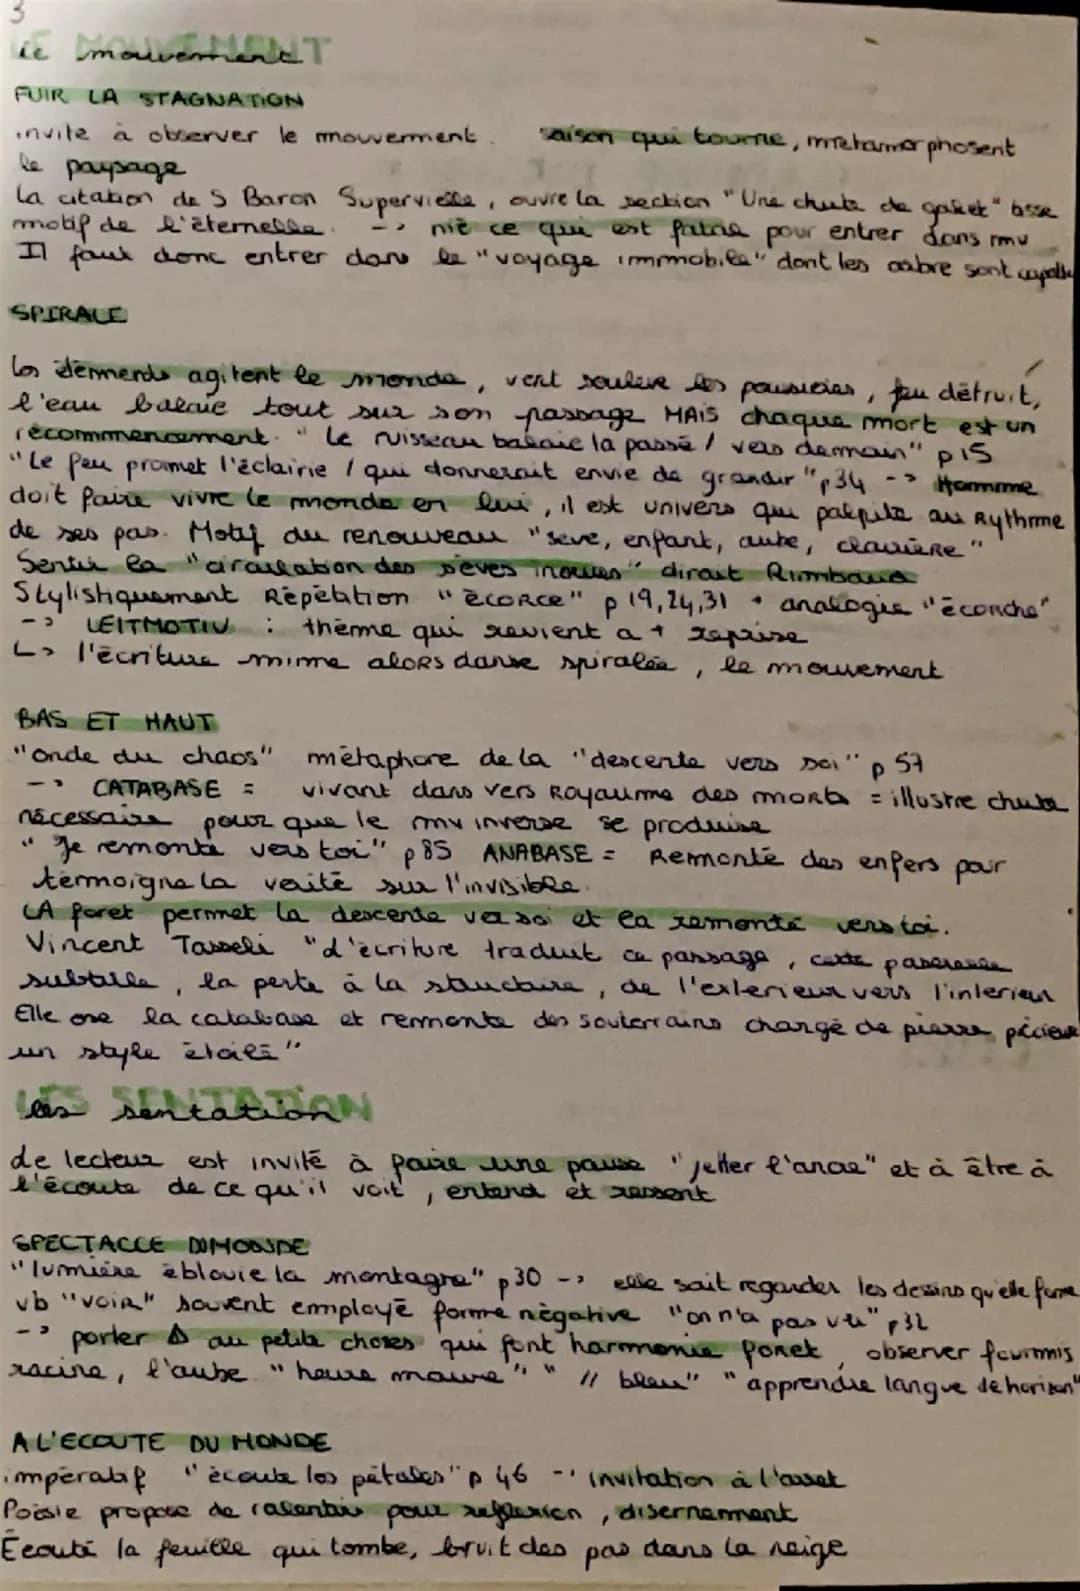 3
le mouvement
FUIR LA STAGNATION
invite à observer le mouvement. saison qui tourne, métamorphosent
le paysage
La citation de S Baron Supervielle, ouvre la section "Une chute de galet"
motif de l'éternelle. -> nié ce qui est pour entrer dans mv
Il faut donc entrer dans le "voyage immobile" dont les arbre sont capable
SPIRALE
Les éléments agitent le monde, vent soulève les poussières, feu détruit,
l'eau balaie tout sur son passage MAIS chaque mort est un
recommencement. "Le ruisseau balaie la passé / vers demain" p 15
"Le feu promet l'éclaircie / qui donnerait envie de grandir" p 34 -> Homme
doit faire vivre le monde en lui, il est univers qui palpite au Rythme
de ses pas. Motif du renouveau "seve, enfant, aube, clairière"
Sentir la "circulation des sèves inouies" dirait Rimbaud
Stylistiquement Répétition "ECORCE" p 19, 24, 31 + analogie "écorché"
-> LEITMOTIV : thème qui revient a + reprise
L> l'écriture mime alors danse spiralée, le mouvement
BAS ET HAUT
"onde du chaos" métaphore de la "descente vers soi" p 57
-> CATABASE = vivant dans vers Royaume des morts = illustre chute
nécessaire pour que le mv inverse se produise
"Je remonte vers toi" p 85 ANABASE = Remonté des enfers pour
témoigne la vérité sur l'invisible.
LA foret permet la descente vers soi et la remonté vers toi.
Vincent Tasseli "L'écriture traduit ce passage, cette passerelle
subtille, la perte à la structure, de l'exterieur vers l'interieur
Elle ose la catabase et remonte des souterrains chargé de pierre précieuse
un style étoilé"
LES SENTATION
les sentation
Le lecteur est invité à faire une pause "jetter l'ancre" et à être à
l'écoute de ce qu'il voit, entend et ressent
SPECTACLE DU MONDE
"lumière éblouie la montagne" p 30 -> elle sait regarder les dessins qu'elle forme
vb "VOIR" souvent employé forme négative "on n'a pas vu" p 32
-> porter Δ au petite choses qui font harmonie foret, observer fourmis
racine, l'aube "heure mauve" " // bleu" "apprendre langue de horizon"
A L'ECOUTE DU MONDE
impératif "écoute les pétales" p 46 -> invitation à l'arret
Poésie propose de ralentir pour reflexion, disernement
Écouté la feuille qui tombe, bruit des pas dans la neige